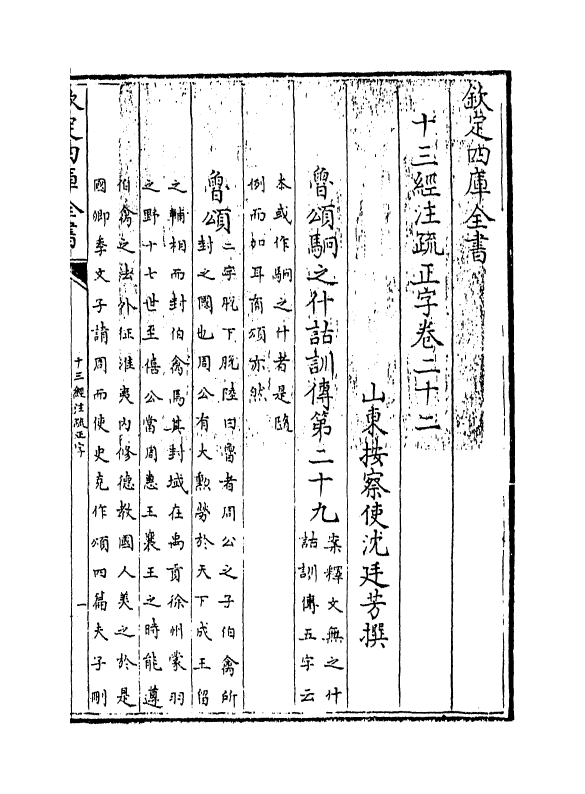 欽定四庫全書
十三經注疏正字卷二十二
山東按察使沈廷芳撰
魯頌駉之什詁訓傳第二十九
案釋文無之什
詁訓傳五字云
本或作駉之什者是隨
例而加耳商頌亦然
魯頌
二字脫下脫陸曰魯者周公之子伯禽所
封之國也周公有大勲勞於天下成王留
之輔相而封伯禽焉其封域在禹貢徐州蒙羽
之野十七世至僖公當周惠王襄王之時能遵
伯禽之法外征淮夷内修德教國人美之於是
國卿季文子請周而使史克作頌四篇夫子刪
欽定四庫全書
十三經注疏正字
一